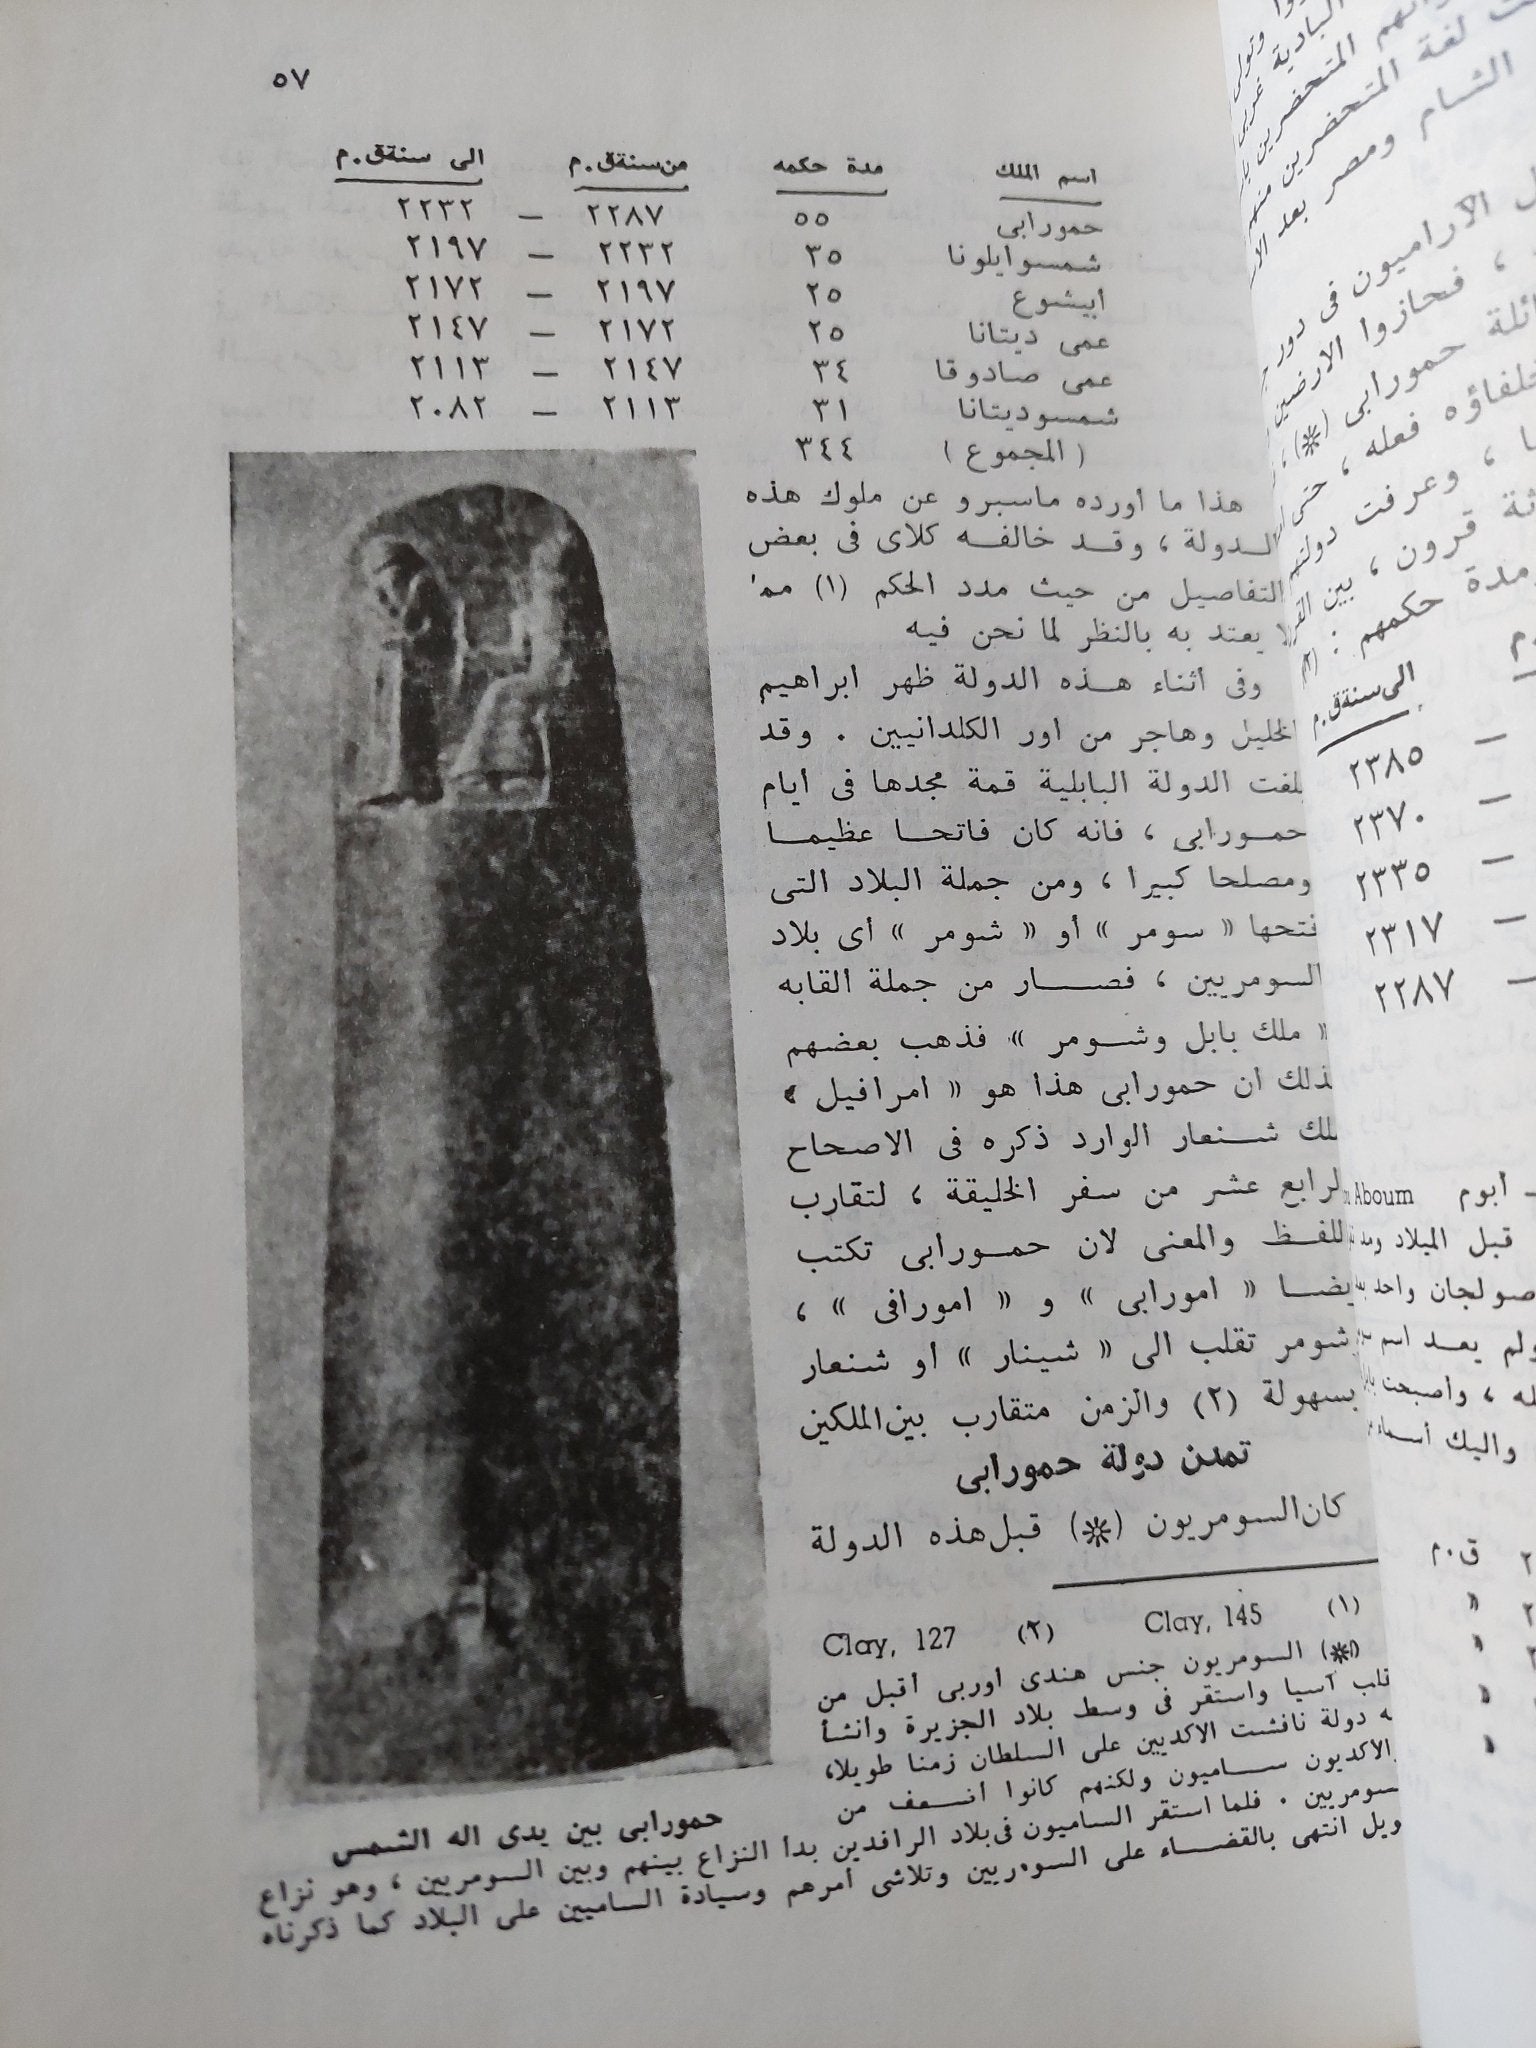 ٥٧
اسم الملك مدة حكمه من سنة ق.م الى سنة ق.م
حمورابى ٥٥ ٢٢٨٧ — ٢٢٣٢
شمسوايلونا ٣٥ ٢٢٣٢ — ٢١٩٧
أبيشوع ٢٥ ٢١٩٧ — ٢١٧٢
عمى ديتانا ٢٥ ٢١٧٢ — ٢١٤٧
عمى صادوقا ٣٤ ٢١٤٧ — ٢١١٣
شمسوديتانا ٣١ ٢١١٣ — ٢٠٨٢
( المجموع ) ٣٤٤
هذا ما أورده ماسبرو عن ملوك هذه
الدولة ، وقد خالفه كلاى فى بعض
التفاصيل من حيث مدد الحكم (١) مما
لا يعتد به بالنظر لما نحن فيه
وفى أثناء هذه الدولة ظهر ابراهيم
الخليل وهاجر من اور الكلدانيين . وقد
بلغت الدولة البابلية قمة مجدها فى أيام
حمورابى ، فانه كان فاتحا عظيما
ومصلحا كبيرا ، ومن جملة البلاد التى
فتحها « سومر » أو « شومر » أى بلاد
السومريين ، فصار من جملة القابه
« ملك بابل وشومر » فذهب بعضهم
لذلك ان حمورابى هذا هو « امرافيل »
ملك شنعار الوارد ذكره فى الاصحاح
الرابع عشر من سفر الخليقة ، لتقارب
اللفظ والمعنى لان حمورابى تكتب
ايضا « امورابى » و « امورافى » ،
شومر تقلب الى « شينار » أو شنعار
بسهولة (٢) والزمن متقارب بين الملكين
تمدن دولة حمورابى
كان السومريون (*) قبل هذه الدولة
(١) Clay, 145 (٢) Clay, 127
(*) السومريون جنس هندى اوربى أقبل من
قلب آسيا واستقر فى وسط بلاد الجزيرة وانشأ
له دولة نافست الاكديين على السلطان زمنا طويلا،
والاكديون ساميون ولكنهم كانوا أضعف من
السومريين . فلما استقر الساميون فى بلاد الرافدين بدأ النزاع بينهم وبين السومريين ، وهو نزاع
طويل انتهى بالقضاء على السومريين وتلاشى أمرهم وسيادة الساميين على البلاد كما ذكرناه
حمورابى بين يدى اله الشمس
وتولى
البادية غربى
المتحضرين
لغة المتحضرين منهم
الشام ومصر بعد
الآراميون فى دور
، فحازوا الارضين
حمورابى (*) ،
خلفاؤه فعله ، حتى
، وعرفت دولتهم
قرون ، بين
مدة حكمهم : (٢)
الى سنة ق.م
— ٢٣٨٥
— ٢٣٧٠
— ٢٣٣٥
— ٢٣١٧
— ٢٢٨٧
أبوم Aboum
قبل الميلاد
صولجان واحد
ولم يعد اسم
، وأصبحت
واليك أسماء
ق.م
»
»
»
»